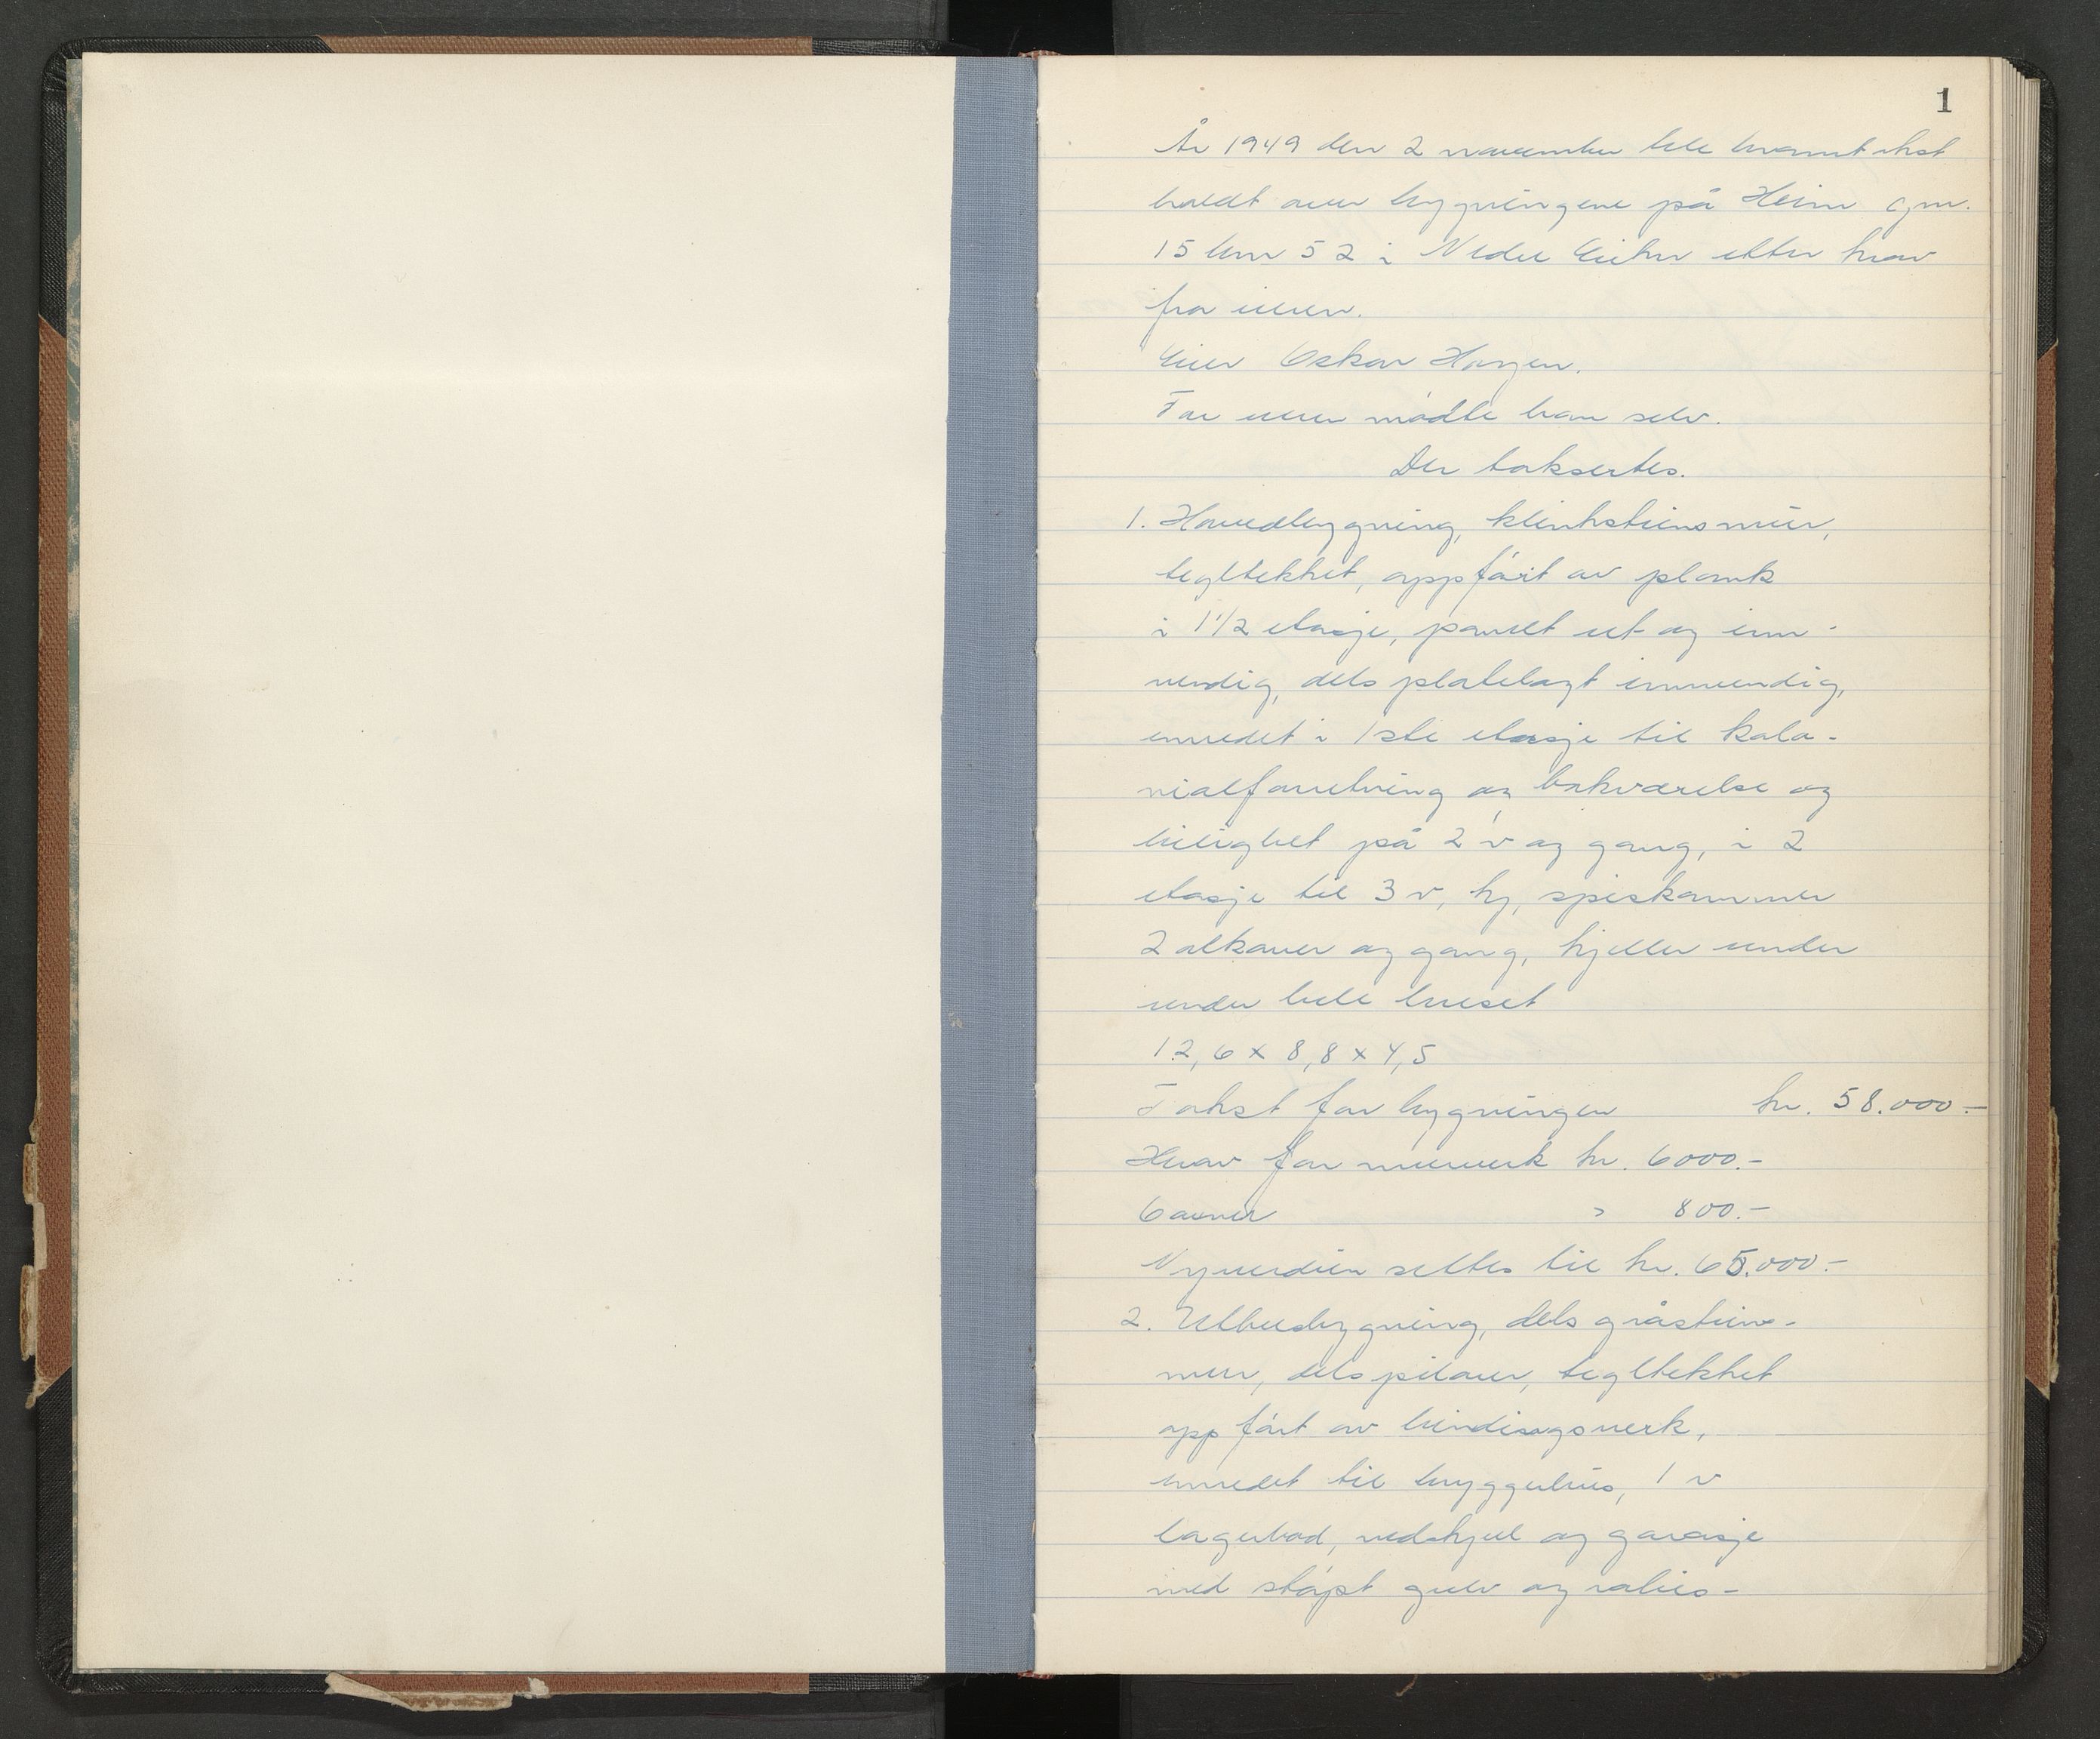 1
År 1949 den 2 november ble branntakst
holdt over bygningene på Heim gnr.
15 bnr 52 i Nedre Eiker etter krav
fra eieren.
Eier Oskar Hagen.
For eieren mødte han selv.
Der taksertes.
1. Hovedbygning, klinkstensmur,
tegltekket, oppført av plank
i 1 1/2 etasje, panelt ut- og inn-
vendig, dels platelagt innvendig,
innredet i 1ste etasje til kolo-
nialforretning og bakværelse og
leilighet på 2 v og gang, i 2
etasje til 3 v, kj, spiskammer
2 alkover og gang, kjeller under
under hele huset
12,6 x 8,8 x 4,5
Takst for bygningen kr. 58.000.-
Herav for murverk kr. 6000.-
6 ovner " 800.-
Nyverdien settes til kr. 65.000.-
2. Uthusbygning, dels gråstens-
mur, dels pilarer, tegltekket
oppført av bindingsverk,
innredet til bryggerhus, 1 v
lagerbod, vedskjul og garasje
med støpt gulv og rabits-